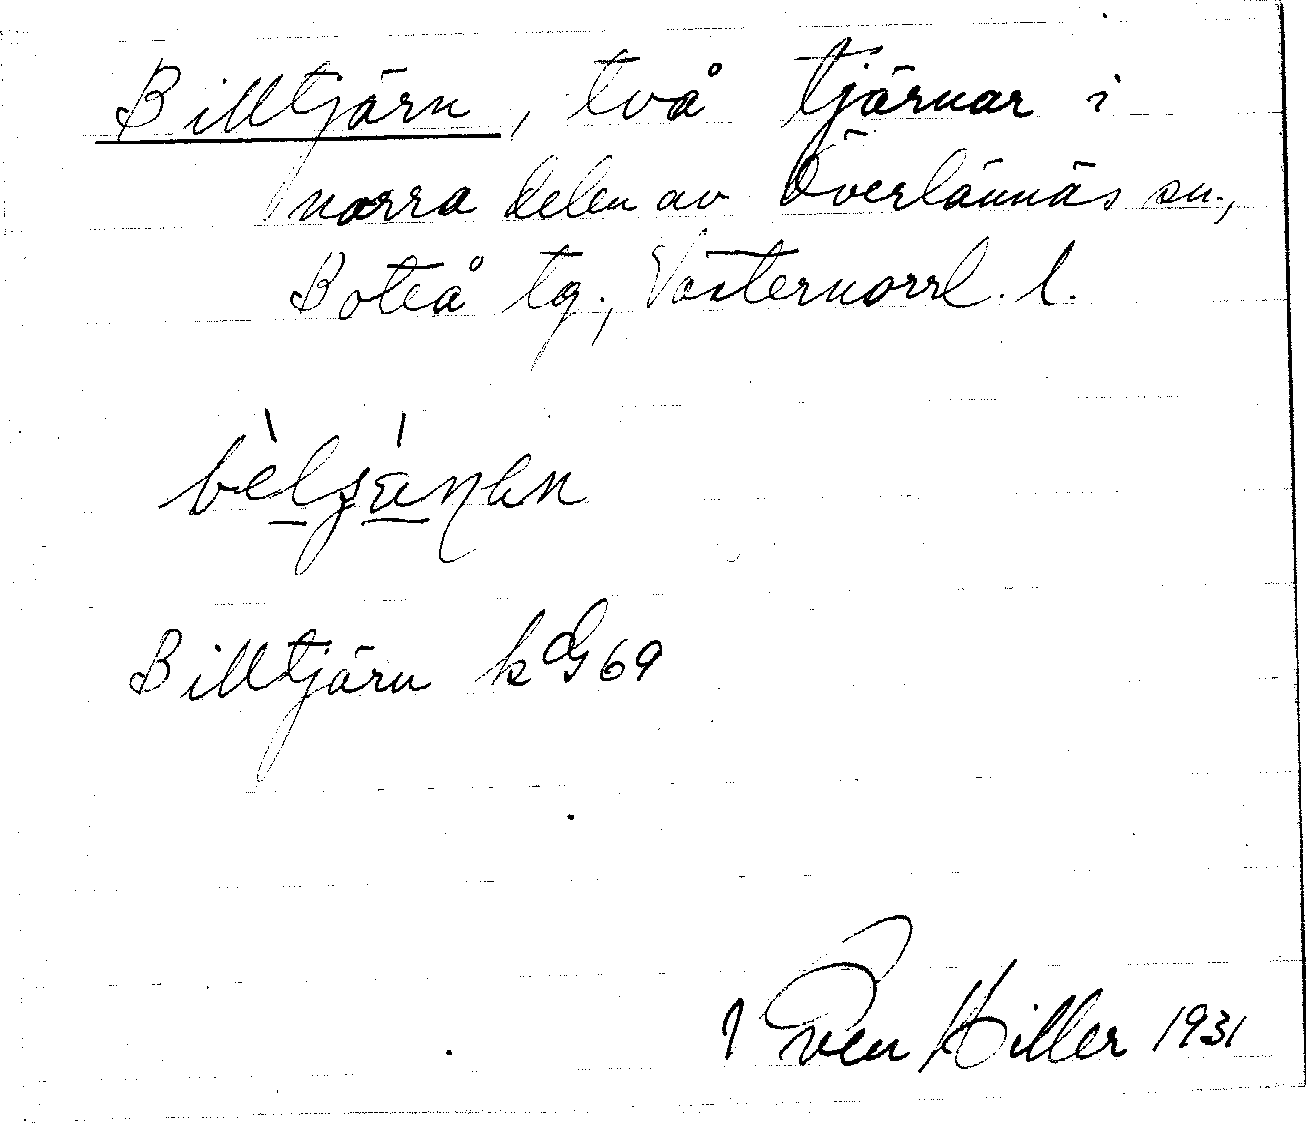 Billtjärn, två tjärnar i
norra delen av Överlännäs sn.,
Boteå tg., Västernorrl. l.
Billtjärn k G 69
Sven Hiller 1931